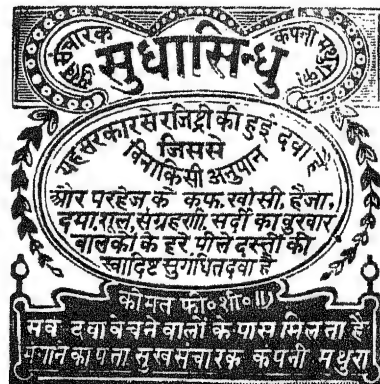 सुख संचारक कंपनी मथुरा का
सुधासिन्धु
यह सरकार से रजिट्री की हुई दवा है
जिससे
बिना किसी अनुपान
और परहेज के कफ, खांसी, हैजा,
दमा, शूल, संग्रहणी, सर्दी का बुखार
बालकों के हरे पीले दस्तों की
स्वादिष्ट सुगंधित दवा है
कीमत फी० शी० ॥)
सब दवा बेचने वालों के पास मिलता है
मंगाने का पता सुख संचारक कंपनी मथुरा